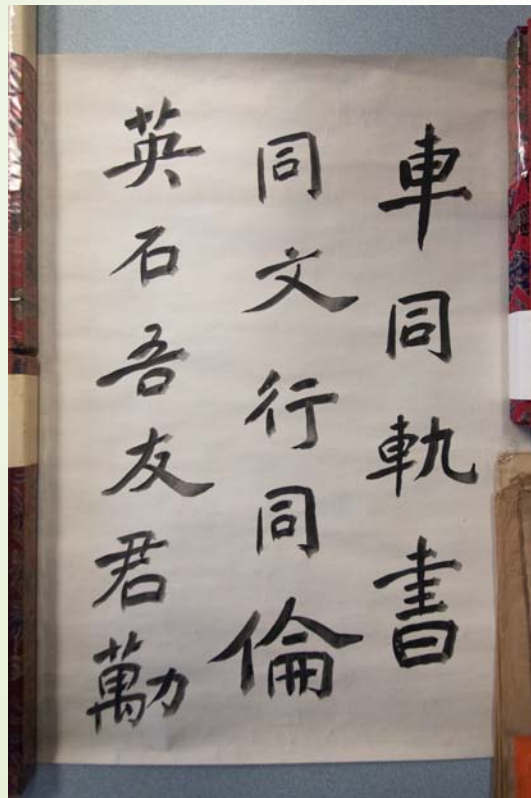 車同軌書
同文行同倫
英石吾友君勱